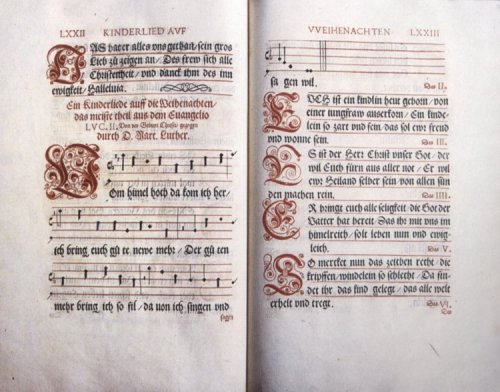 LXXII KINDERLIED AVF
DAS hat er alles vns gethan/ sein gros
Lieb zů zeigen an/ Des frew sich alle
Christenheit/ vnd danck jhm des inn
ewigkeit/ Halleluia.
Ein Kinderliede auff die Weihenachten/
das meiste theil aus dem Euangelio
LVC. II. Von der Geburt Christi/ gezogen
durch D. Mart. Luther.
VOm himel hoch da kom ich her/
ich bring euch gůte newe mehr/ Der gůten
mehr bring ich so fil/ da von ich singen vnd
sagen
VVEIHENACHTEN LXXIII
sa gen wil.
Das II.
EVCH ist ein kindlin heut geborn/ von
einer iungfraw auserkorn/ Ein kinde-
lein so zart vnd fein/ das sol ewr freud vnd
vnd wonne sein.
Das III.
ES ist der Herr Christ vnser Got/ der
wil Euch fürn aus aller not/ Er wil
ewer Heiland selber sein/ von allen sün
den machen rein.
Das IIII.
ER bringt euch alle seligkeit/ die Got der
Vatter hat bereit/ Das ihr mit vns im
himelreich/ solt leben nun vnd ewig-
gleich.
Das V.
SO mercket nun das zeichen recht/ die
kripffen/ windelein so schlecht/ Da fin-
det ihr das kind gelegt/ das alle welt
erhelt vnd tregt.
Das VI.
Das